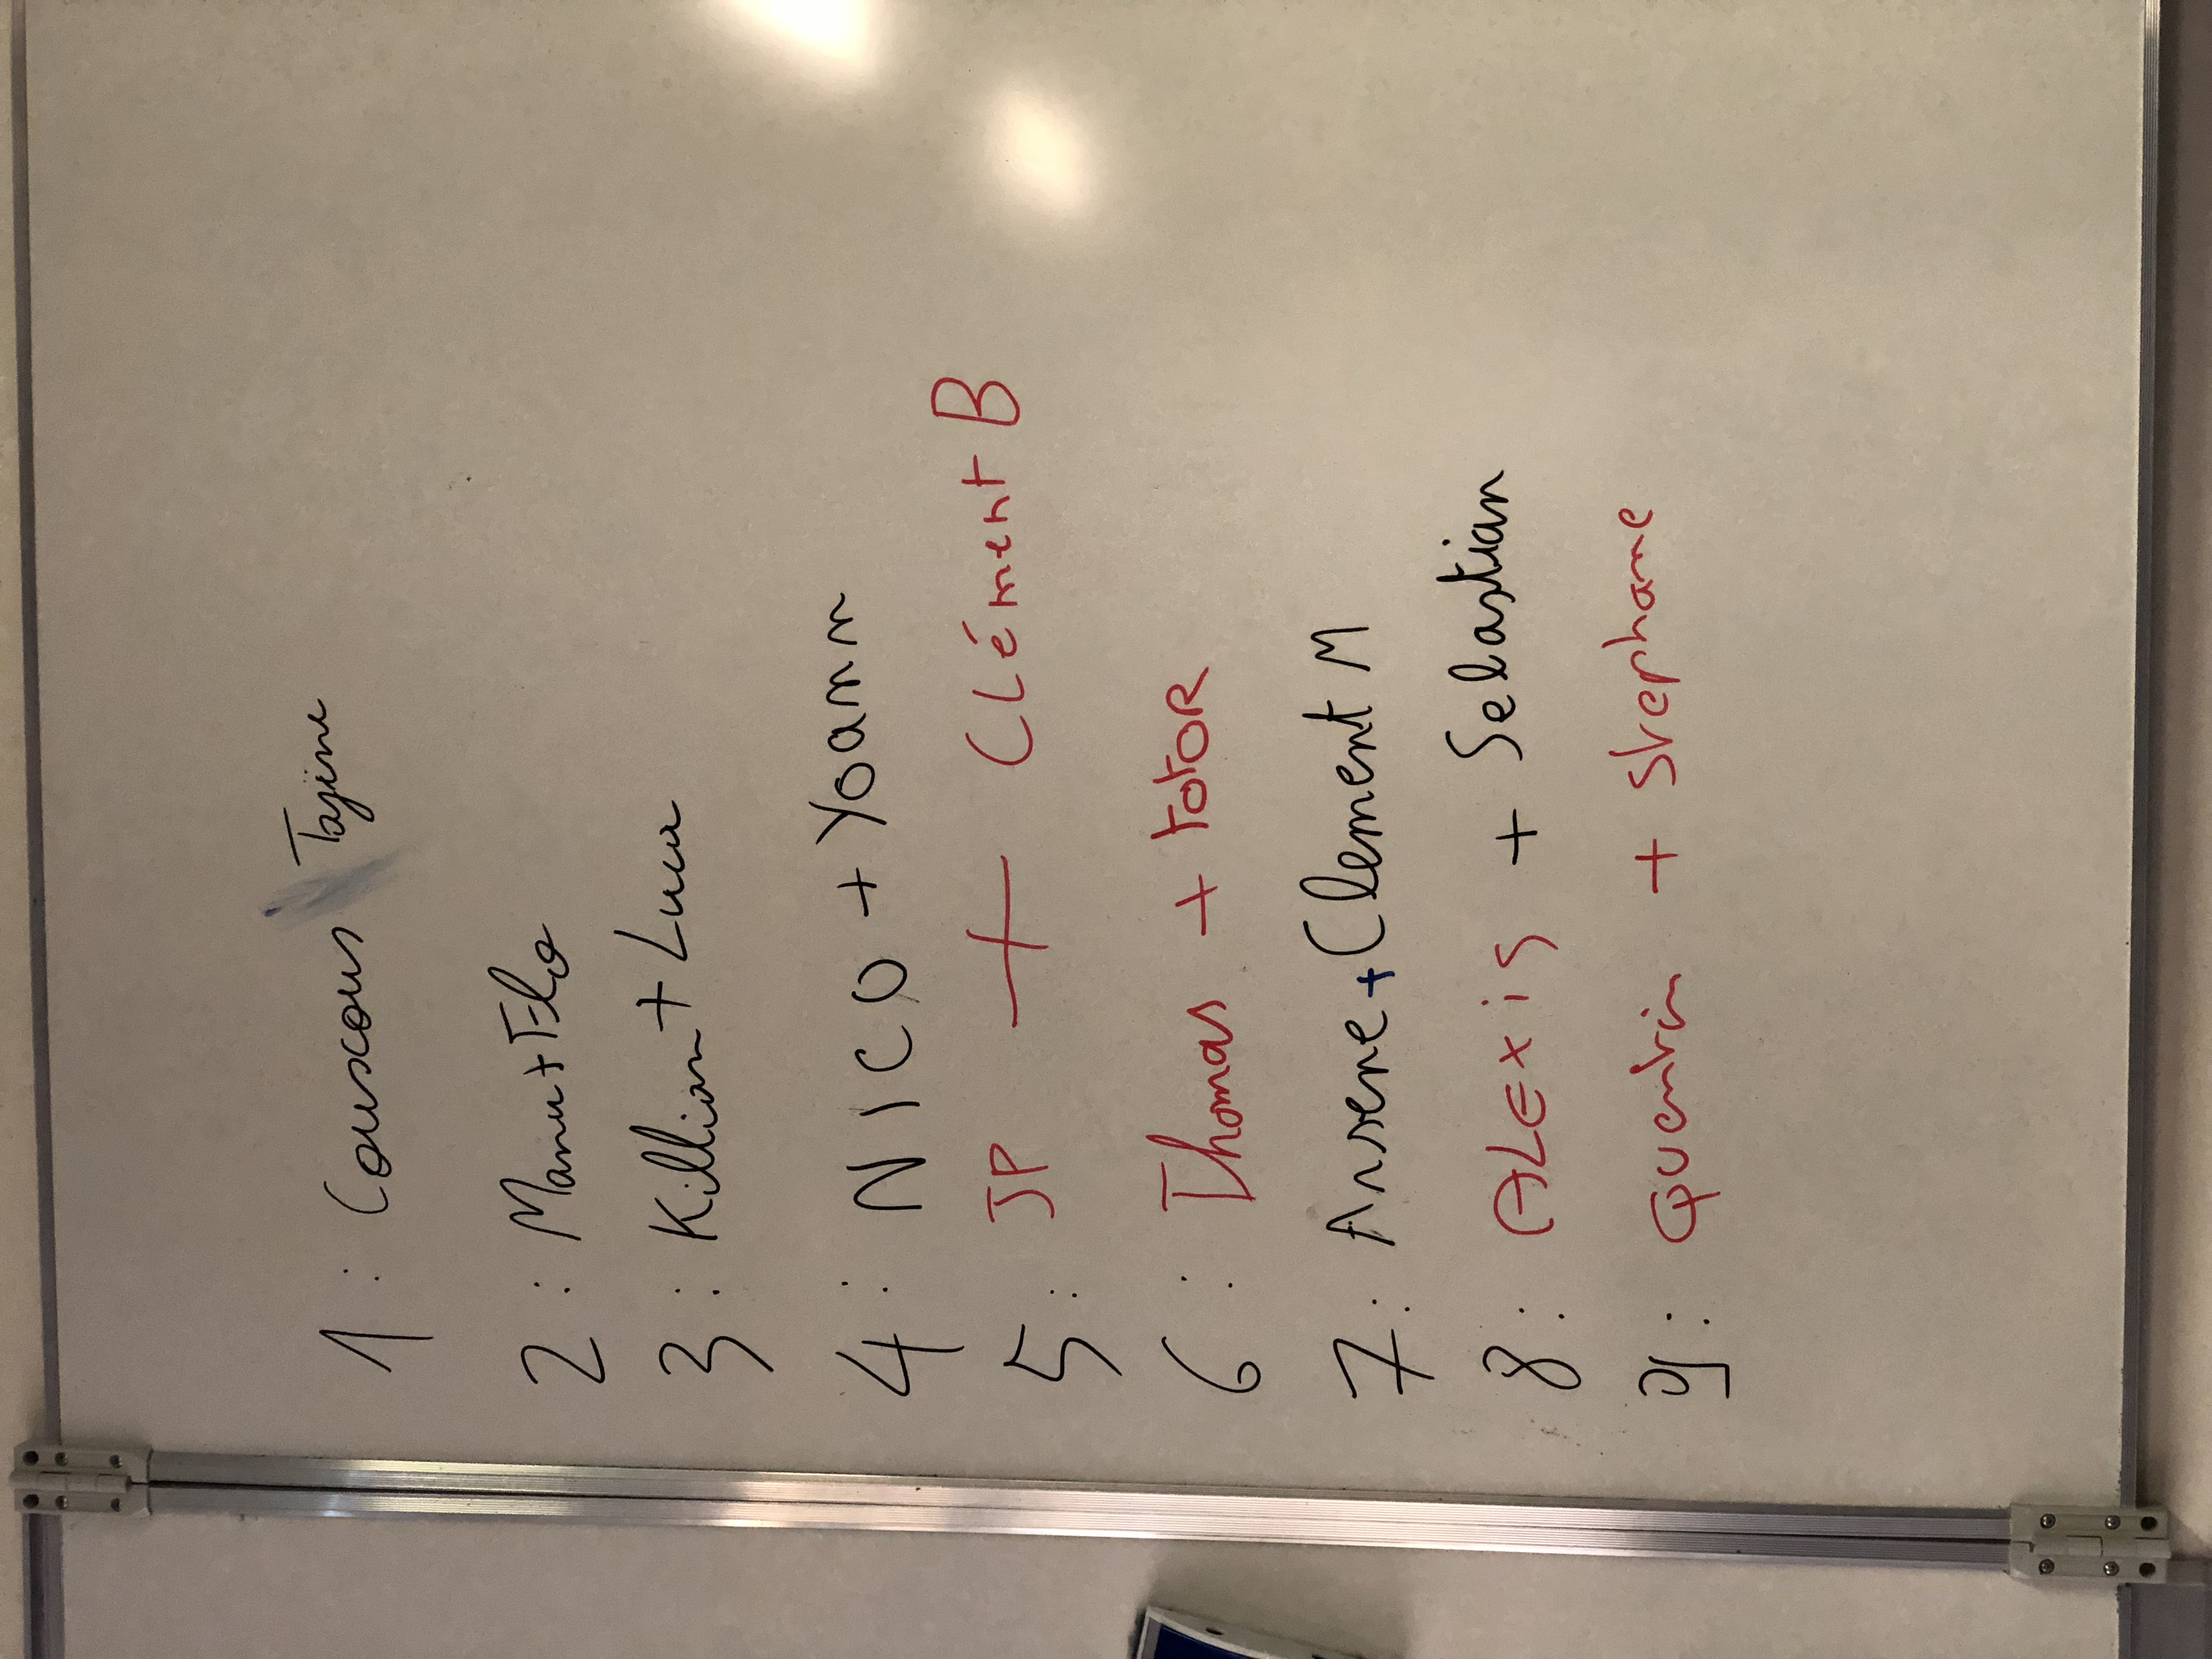 1 : Couscous Tajine
2 : Manu + Flo
3 : Killian + Luca
4 : NICO + Yoann
5 : JP + Clément B
6 : Thomas + totoR
7 : Arsene + Clement M
8 : ALExis + Sebastian
9 : Quentin + Stephane